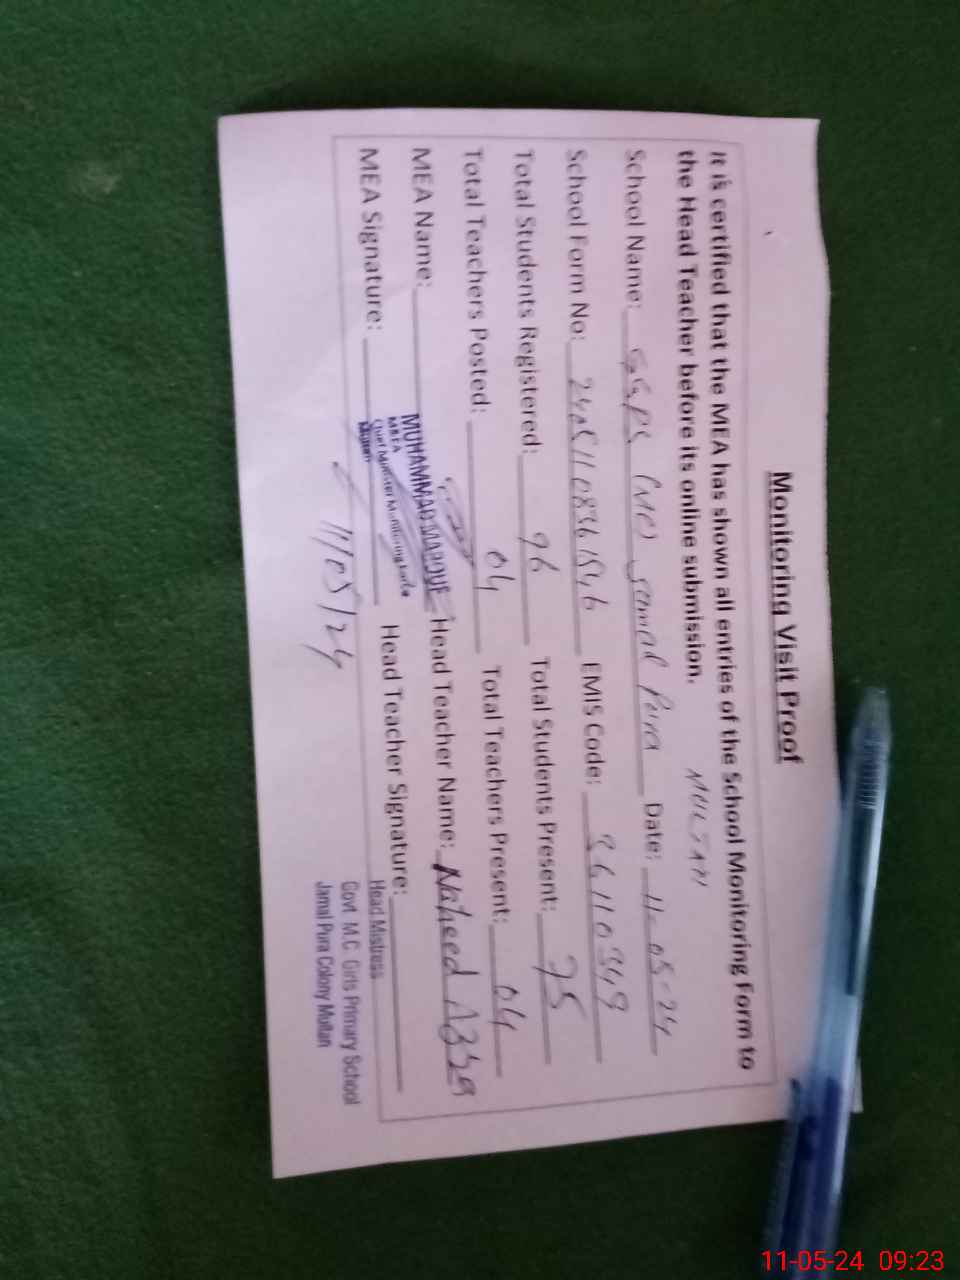 Monitoring Visit Proof
It is certified that the MEA has shown all entries of the School Monitoring Form to
the Head Teacher before its online submission.
MULTAN
School Name: GGPS (MC) Jamal Pura Date: 11-05-24
School Form No: EMIS Code: 36110349
Total Students Registered: 96 Total Students Present: 75
Total Teachers Posted: 04 Total Teachers Present: 04
MEA Name: MUHAMMAD Head Teacher Name: Naheed
MEA
Chief Minister Monitoring Force
Multan
MEA Signature: Head Teacher Signature:
11/05/24
Head Mistress
Govt M.C. Girls Primary School
Jamal Pura Colony Multan
11-05-24 09:23